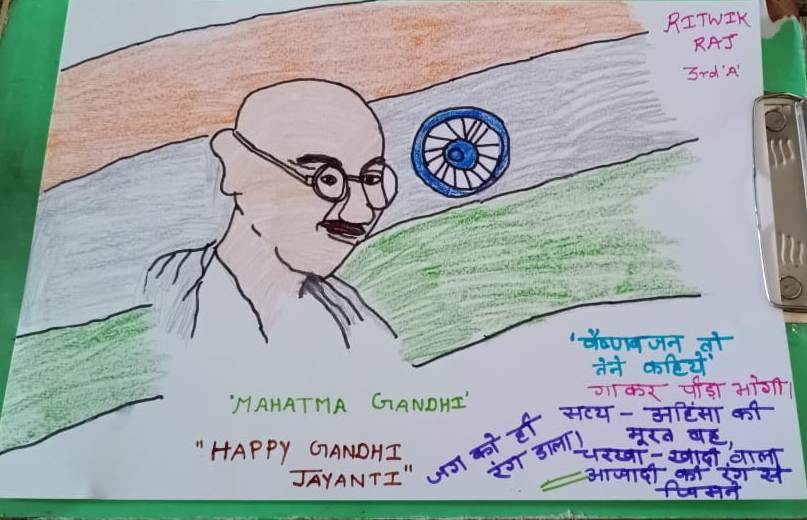 RITWIK
RAJ
3rd 'A'
'MAHATMA GANDHI'
"HAPPY GANDHI
JAYANTI"
'वैष्णव जन तो
तेने कहिये'
गाकर पीड़ा भोगी।
सत्य - अहिंसा की
मूरत वह,
चरखा - खादी वाला
आजादी की रंग से
जिसने
जग को ही
रंग डाला।